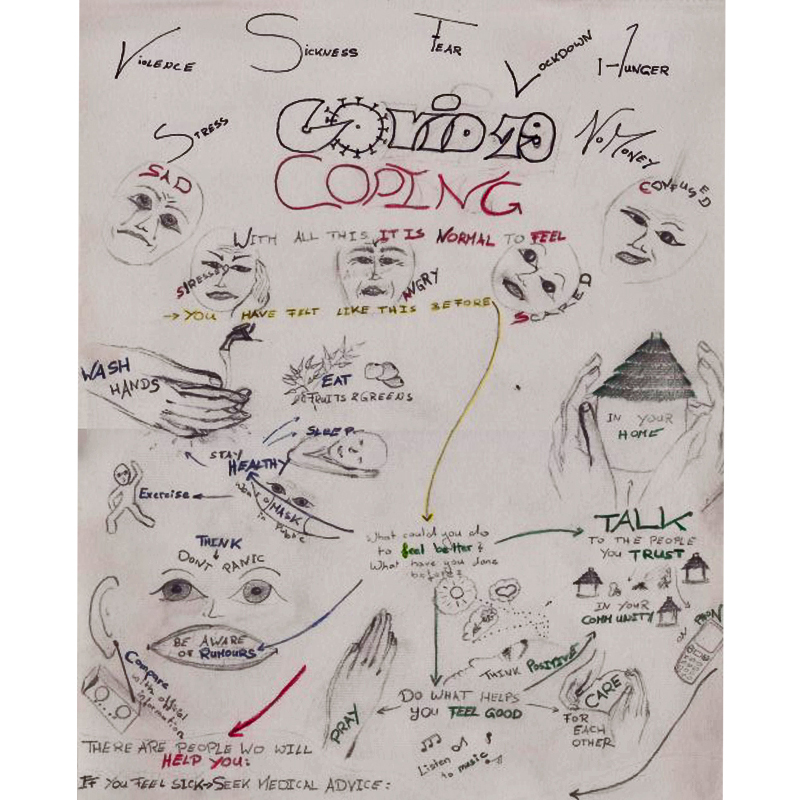 VIOLENCE
SICKNESS
FEAR
LOCKDOWN
HUNGER
STRESS
COVID 19
NO MONEY
COPING
SAD
CONFUSED
WITH ALL THIS IT IS NORMAL TO FEEL
STRESSED
ANGRY
SCARED
→ YOU HAVE FELT LIKE THIS BEFORE
WASH
HANDS
EAT
FRUITS & GREENS
SLEEP
STAY
HEALTHY
Exercise
MASK
in Public
IN YOUR
HOME
What could you do
to feel better?
What have you done
before?
TALK
TO THE PEOPLE
YOU TRUST
IN YOUR
COMMUNITY
OR PHON
THINK
DONT PANIC
BE AWARE
OF RUMOURS
Compare
with official
information
THINK POSITIVE
DO WHAT HELPS
YOU FEEL GOOD
PRAY
CARE
FOR
EACH
OTHER
Listen
to music
THERE ARE PEOPLE WO WILL
HELP YOU:
IF YOU FEEL SICK→SEEK MEDICAL ADVICE: